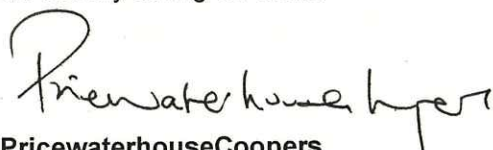 PricewaterhouseCoopers
PricewaterhouseCoopers